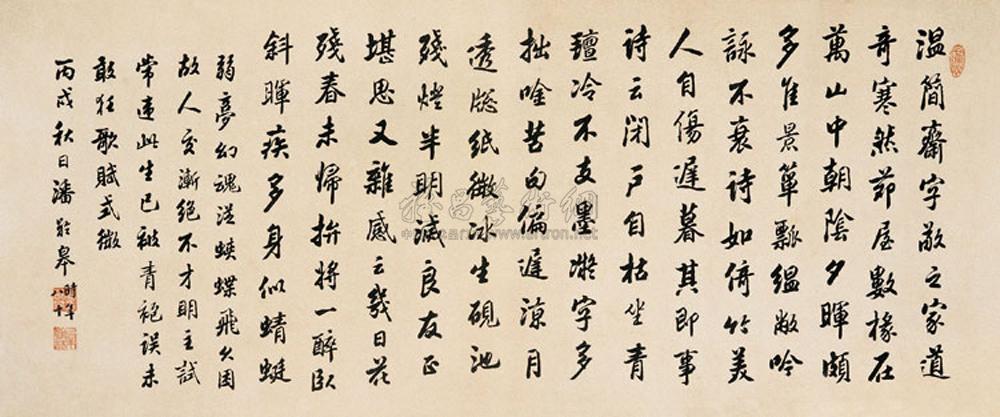 温簡齋字敞之家道
奇寒然茆屋數椽在
萬山中朝陰夕暉頗
多佳景簞瓢縕敝吟
詠不衰詩如倚竹美
人自傷遲暮其即事
詩云閉戶自枯坐青
氈冷不支墨凝字多
拙唫苦句偏遲涼月
透牎紙微冰生硯池
殘燈半明滅良友正
堪思又雜感云幾日花
殘春未歸拚將一醉臥
斜暉疾多身似蜻蜓
弱夢幻魂從蛺蝶飛久困
故人交漸絕不才明主試
常違此生已被青袍誤未
敢狂歌賦式微
丙戌秋日潘齡皋時年八十
雅昌藝術網
artron.net